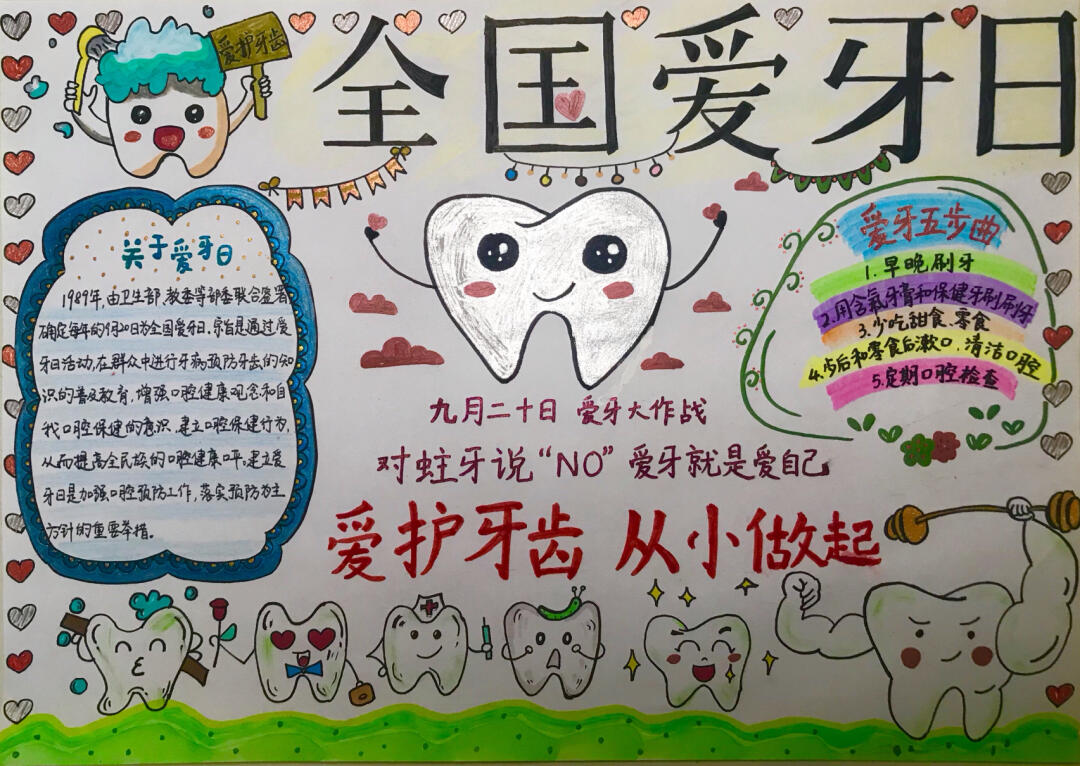 爱护牙齿
全国爱牙日
关于爱牙日
1989年,由卫生部、教委等部委联合签署
确定每年的9月20日为全国爱牙日.宗旨是通过爱
牙日活动,在群众中进行牙病预防牙齿的知
识的普及教育,增强口腔健康观念和自
我口腔保健的意识.建立口腔保健行为,
从而提高全民族的口腔健康水平.建立爱
牙日是加强口腔预防工作,落实预防为主
方针的重要举措。
爱牙五步曲
1.早晚刷牙
2.用含氟牙膏和保健牙刷刷牙
3.少吃甜食、零食
4.后和零食后漱口、清洁口腔
5.定期口腔检查
九月二十日 爱牙大作战
对蛀牙说“NO”爱牙就是爱自己
爱护牙齿 从小做起